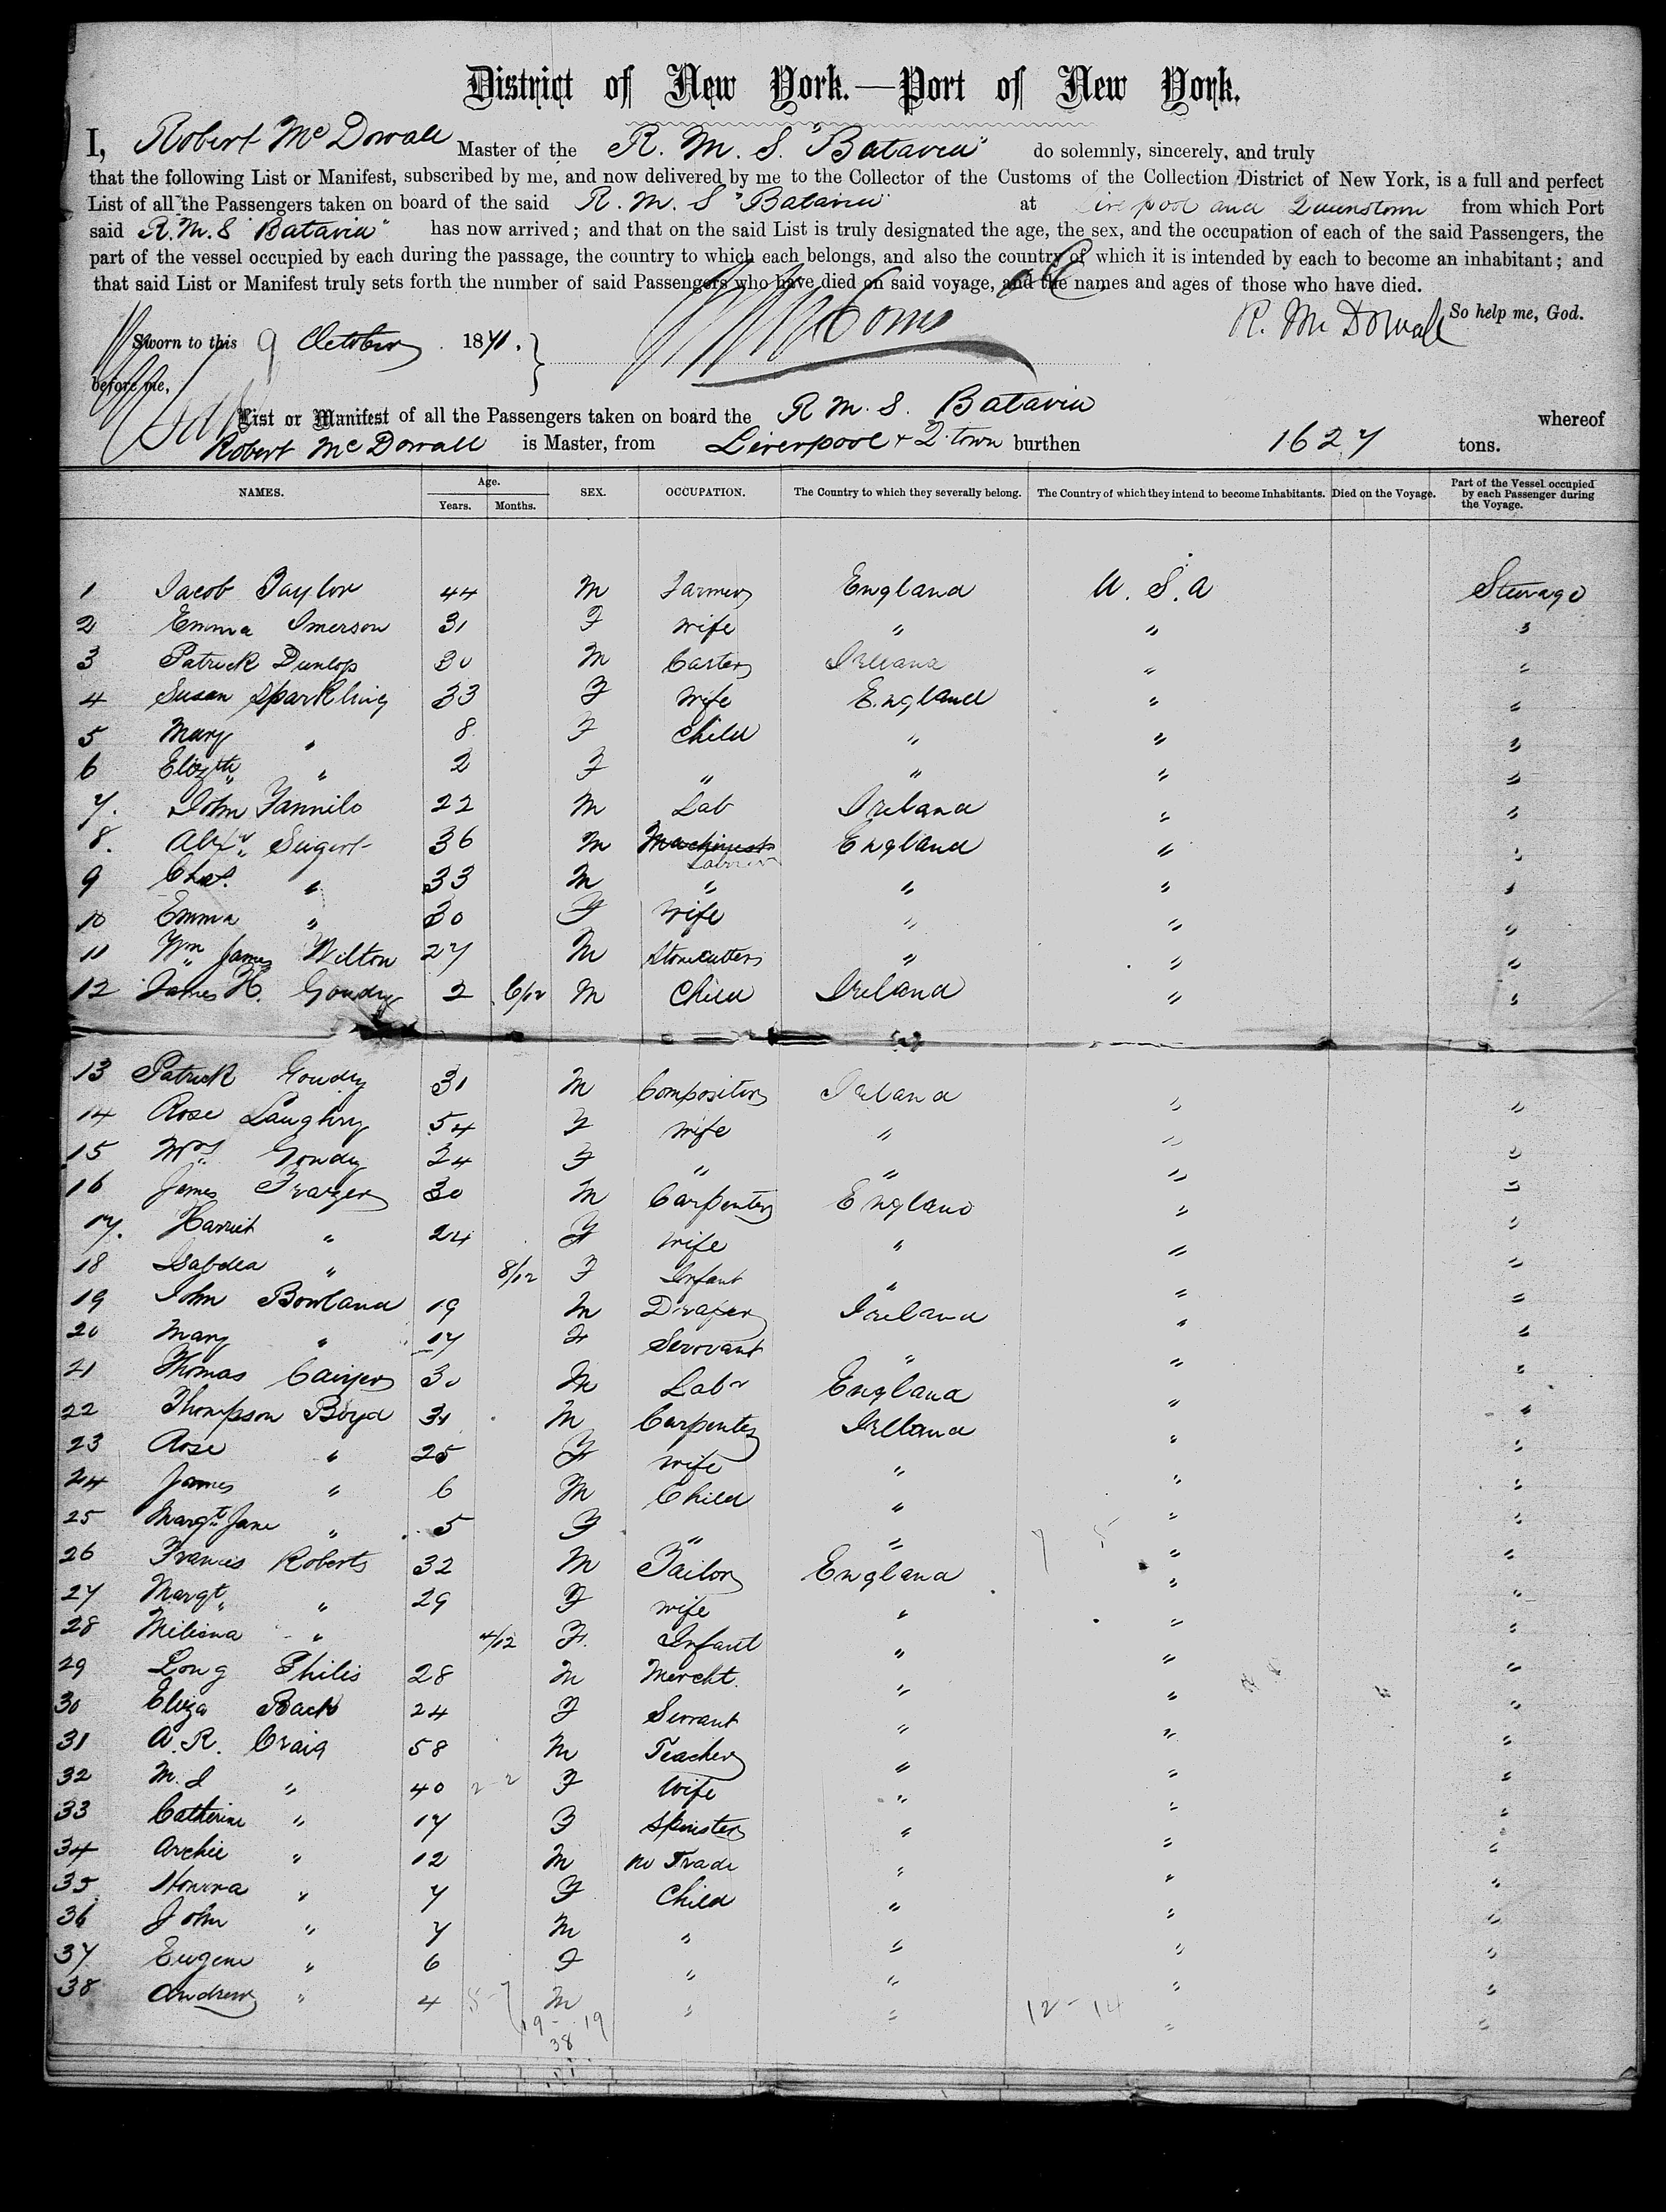 District of New York.—Port of New York.
I, Robert McDowall Master of the R. M. S. "Batavia" do solemnly, sincerely, and truly
that the following List or Manifest, subscribed by me, and now delivered by me to the Collector of the Customs of the Collection District of New York, is a full and perfect
List of all the Passengers taken on board of the said R. M. S "Batavia" at Liverpool and Queenstown from which Port
said R. M. S "Batavia" has now arrived; and that on the said List is truly designated the age, the sex, and the occupation of each of the said Passengers, the
part of the vessel occupied by each during the passage, the country to which each belongs, and also the country of which it is intended by each to become an inhabitant; and
that said List or Manifest truly sets forth the number of said Passengers who have died on said voyage, and the names and ages of those who have died.
So help me, God.
R. McDowall
Sworn to this 9 October 1871.
before me,
List or Manifest of all the Passengers taken on board the R. M. S. Batavia whereof
Robert McDowall is Master, from Liverpool + Q.town burthen 1627 tons.
NAMES. Age. Years. Months. SEX. OCCUPATION. The Country to which they severally belong. The Country of which they intend to become Inhabitants. Died on the Voyage. Part of the Vessel occupied by each Passenger during the Voyage.
1 Jacob Taylor 44 M Farmer England U. S. A Steerage
2 Emma Imerson 31 F wife " " "
3 Patrick Dunlop 30 M Carter Ireland " "
4 Susan Sparkling 33 F Wife England " "
5 Mary " 8 F Child " " "
6 Elizth " 2 F " " " "
7. John 22 M Lab Ireland " "
8. Alexr 36 M Machinist Labourer England " "
9 Chas. " 33 M " " " "
10 Emma " 30 F Wife " " "
11 Wm James Wilton 27 M Stonecutter " " "
12 James H. Goudy 2 6/12 M Child Ireland " "
13 Patrick Goudy 31 M Compositor Ireland " "
14 Rose Laughry 54 F Wife " " "
15 Mrs Goudy 24 F " " " "
16 James Frazer 30 M Carpenter England " "
17. Harriet " 24 F Wife " " "
18 Isabella " 8/12 F Infant " " "
19 John Bowland 19 M Draper Ireland " "
20 Mary " 17 F Servant " " "
21 Thomas 30 M Labr England " "
22 Thompson Boyd 31 M Carpenter Ireland " "
23 Rose " 25 F Wife " " "
24 James " 6 M Child " " "
25 Margt Jane " 5 F " " " "
26 Francis Roberts 32 M Tailor England " "
27 Margt " 29 F Wife " " "
28 " 4/12 F. Infant " " "
29 Long Philis 28 M Mercht. " " "
30 Eliza Back 24 F Servant " " "
31 A. R. Craig 58 M Teacher " " "
32 M. J " 40 F Wife " " "
33 Catherine " 17 F Spinster " " "
34 Archie " 12 M no Trade " " "
35 Honora " 7 F Child " " "
36 John " 7 M " " " "
37 Eugene " 6 F " " " "
38 Andrew " 4 5-7 M " " 12-14 " "
19 - 19
38